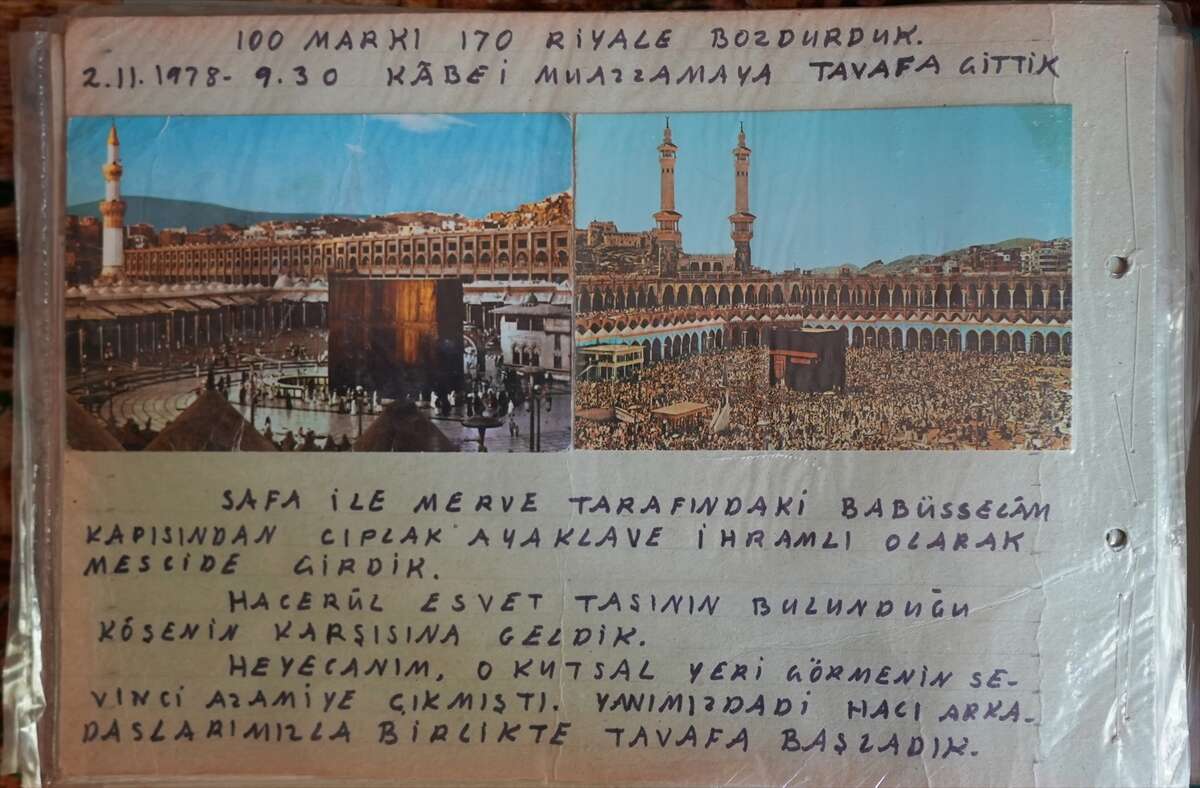 100 MARKI 170 RİYALE BOZDURDUK.
2.11.1978- 9.30 KÂBEİ MUAZZAMAYA TAVAFA GİTTİK
SAFA İLE MERVE TARAFINDAKİ BABÜSSELÂM
KAPISINDAN CIPLAK AYAKLAVE İHRAMLI OLARAK
MESCİDE GİRDİK.
HACERÜL ESVET TASININ BULUNDUĞU
KÖŞENİN KARŞISINA GELDİK.
HEYECANIM, O KUTSAL YERİ GÖRMENİN SE-
VİNCİ AZAMİYE ÇIKMIŞTI. YANIMIZDADİ HACI ARKA-
DASLARIMIZLA BİRLİKTE TAVAFA BAŞLADIK.